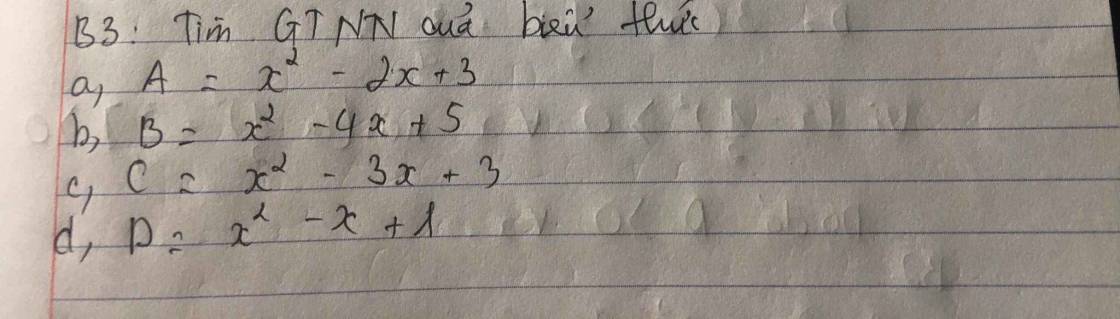 B3: Tìm GTNN quả biểu thức
a, A = x² - 2x + 3
b, B = x² - 4x + 5
c, C = x² - 3x + 3
d, D = x² - x + 1